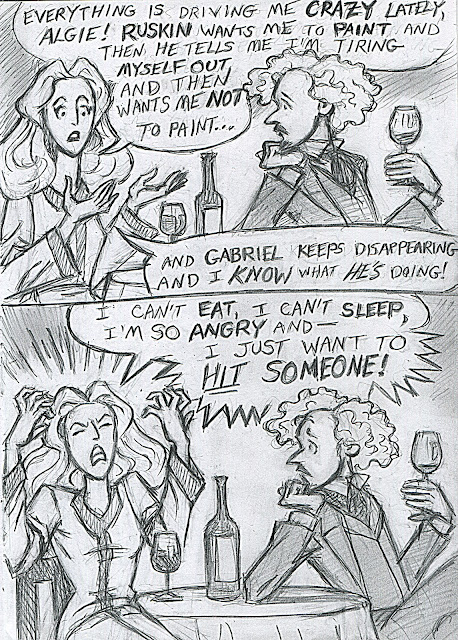 EVERYTHING IS DRIVING ME CRAZY LATELY,
ALGIE! RUSKIN WANTS ME TO PAINT AND
THEN HE TELLS ME I'M TIRING
MYSELF OUT
AND THEN
WANTS ME NOT
TO PAINT...
AND GABRIEL KEEPS DISAPPEARING
AND I KNOW WHAT HE'S DOING!
I CAN'T EAT, I CAN'T SLEEP,
I'M SO ANGRY AND—
I JUST WANT TO
HIT SOMEONE!